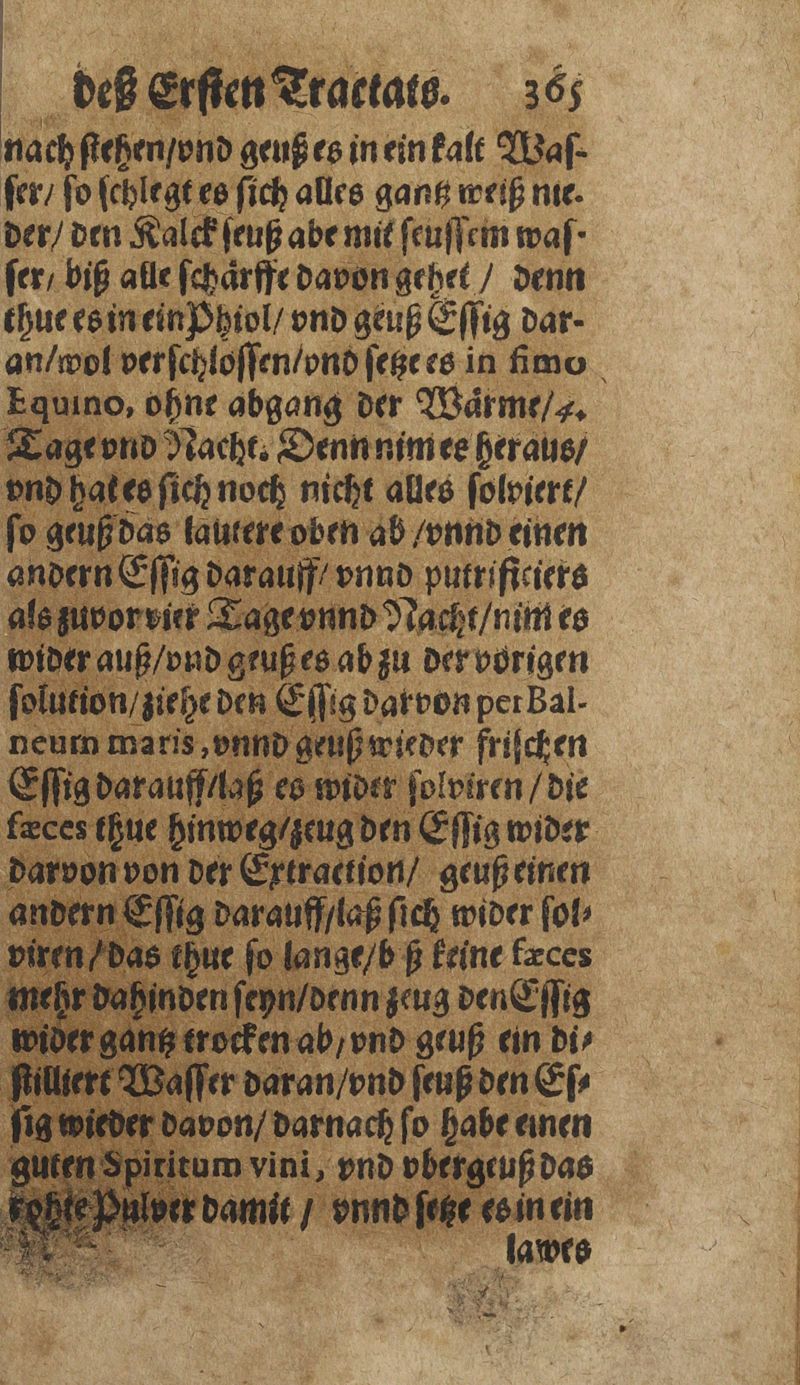 deß Ersten Tractats. 365
nach stehen/vnd geuß es in ein kalt Was-
ser/ so schlegt es sich alles gantz weiß nie-
der/ den Kalck seuß abe mit seussem was-
ser/ biß alle schärffe davon gehet / denn
thue es in ein Phiol/ vnd geuß Essig dar-
an/wol verschlossen/vnd setze es in fimo
Equino, ohne abgang der Wärme/4.
Tage vnd Nacht. Denn nim es heraus/
vnd hat es sich noch nicht alles solviert/
so geuß das lautere oben ab /vnnd einen
andern Essig darauff/ vnnd putrificiers
als zuvor vier Tage vnnd Nacht/nim es
wider auß/vnd geuß es ab zu der vörigen
solution/ziehe den Essig darvon per Bal-
neum maris, vnnd geuß wieder frischen
Essig darauff/laß es wider solviren / die
fæces thue hinweg/zeug den Essig wider
darvon von der Extraction/ geuß einen
andern Essig darauff/laß sich wider sol-
viren / das thue so lange/b ß keine fæces
mehr dahinden seyn/denn zeug den Essig
wider gantz trocken ab/vnd geuß ein di-
stilliert Wasser daran/vnd seuß den Es-
sig wieder davon/ darnach so habe einen
guten Spiritum vini, vnd vbergeuß das
rohte Pulver damit / vnnd setze es in ein
lawes